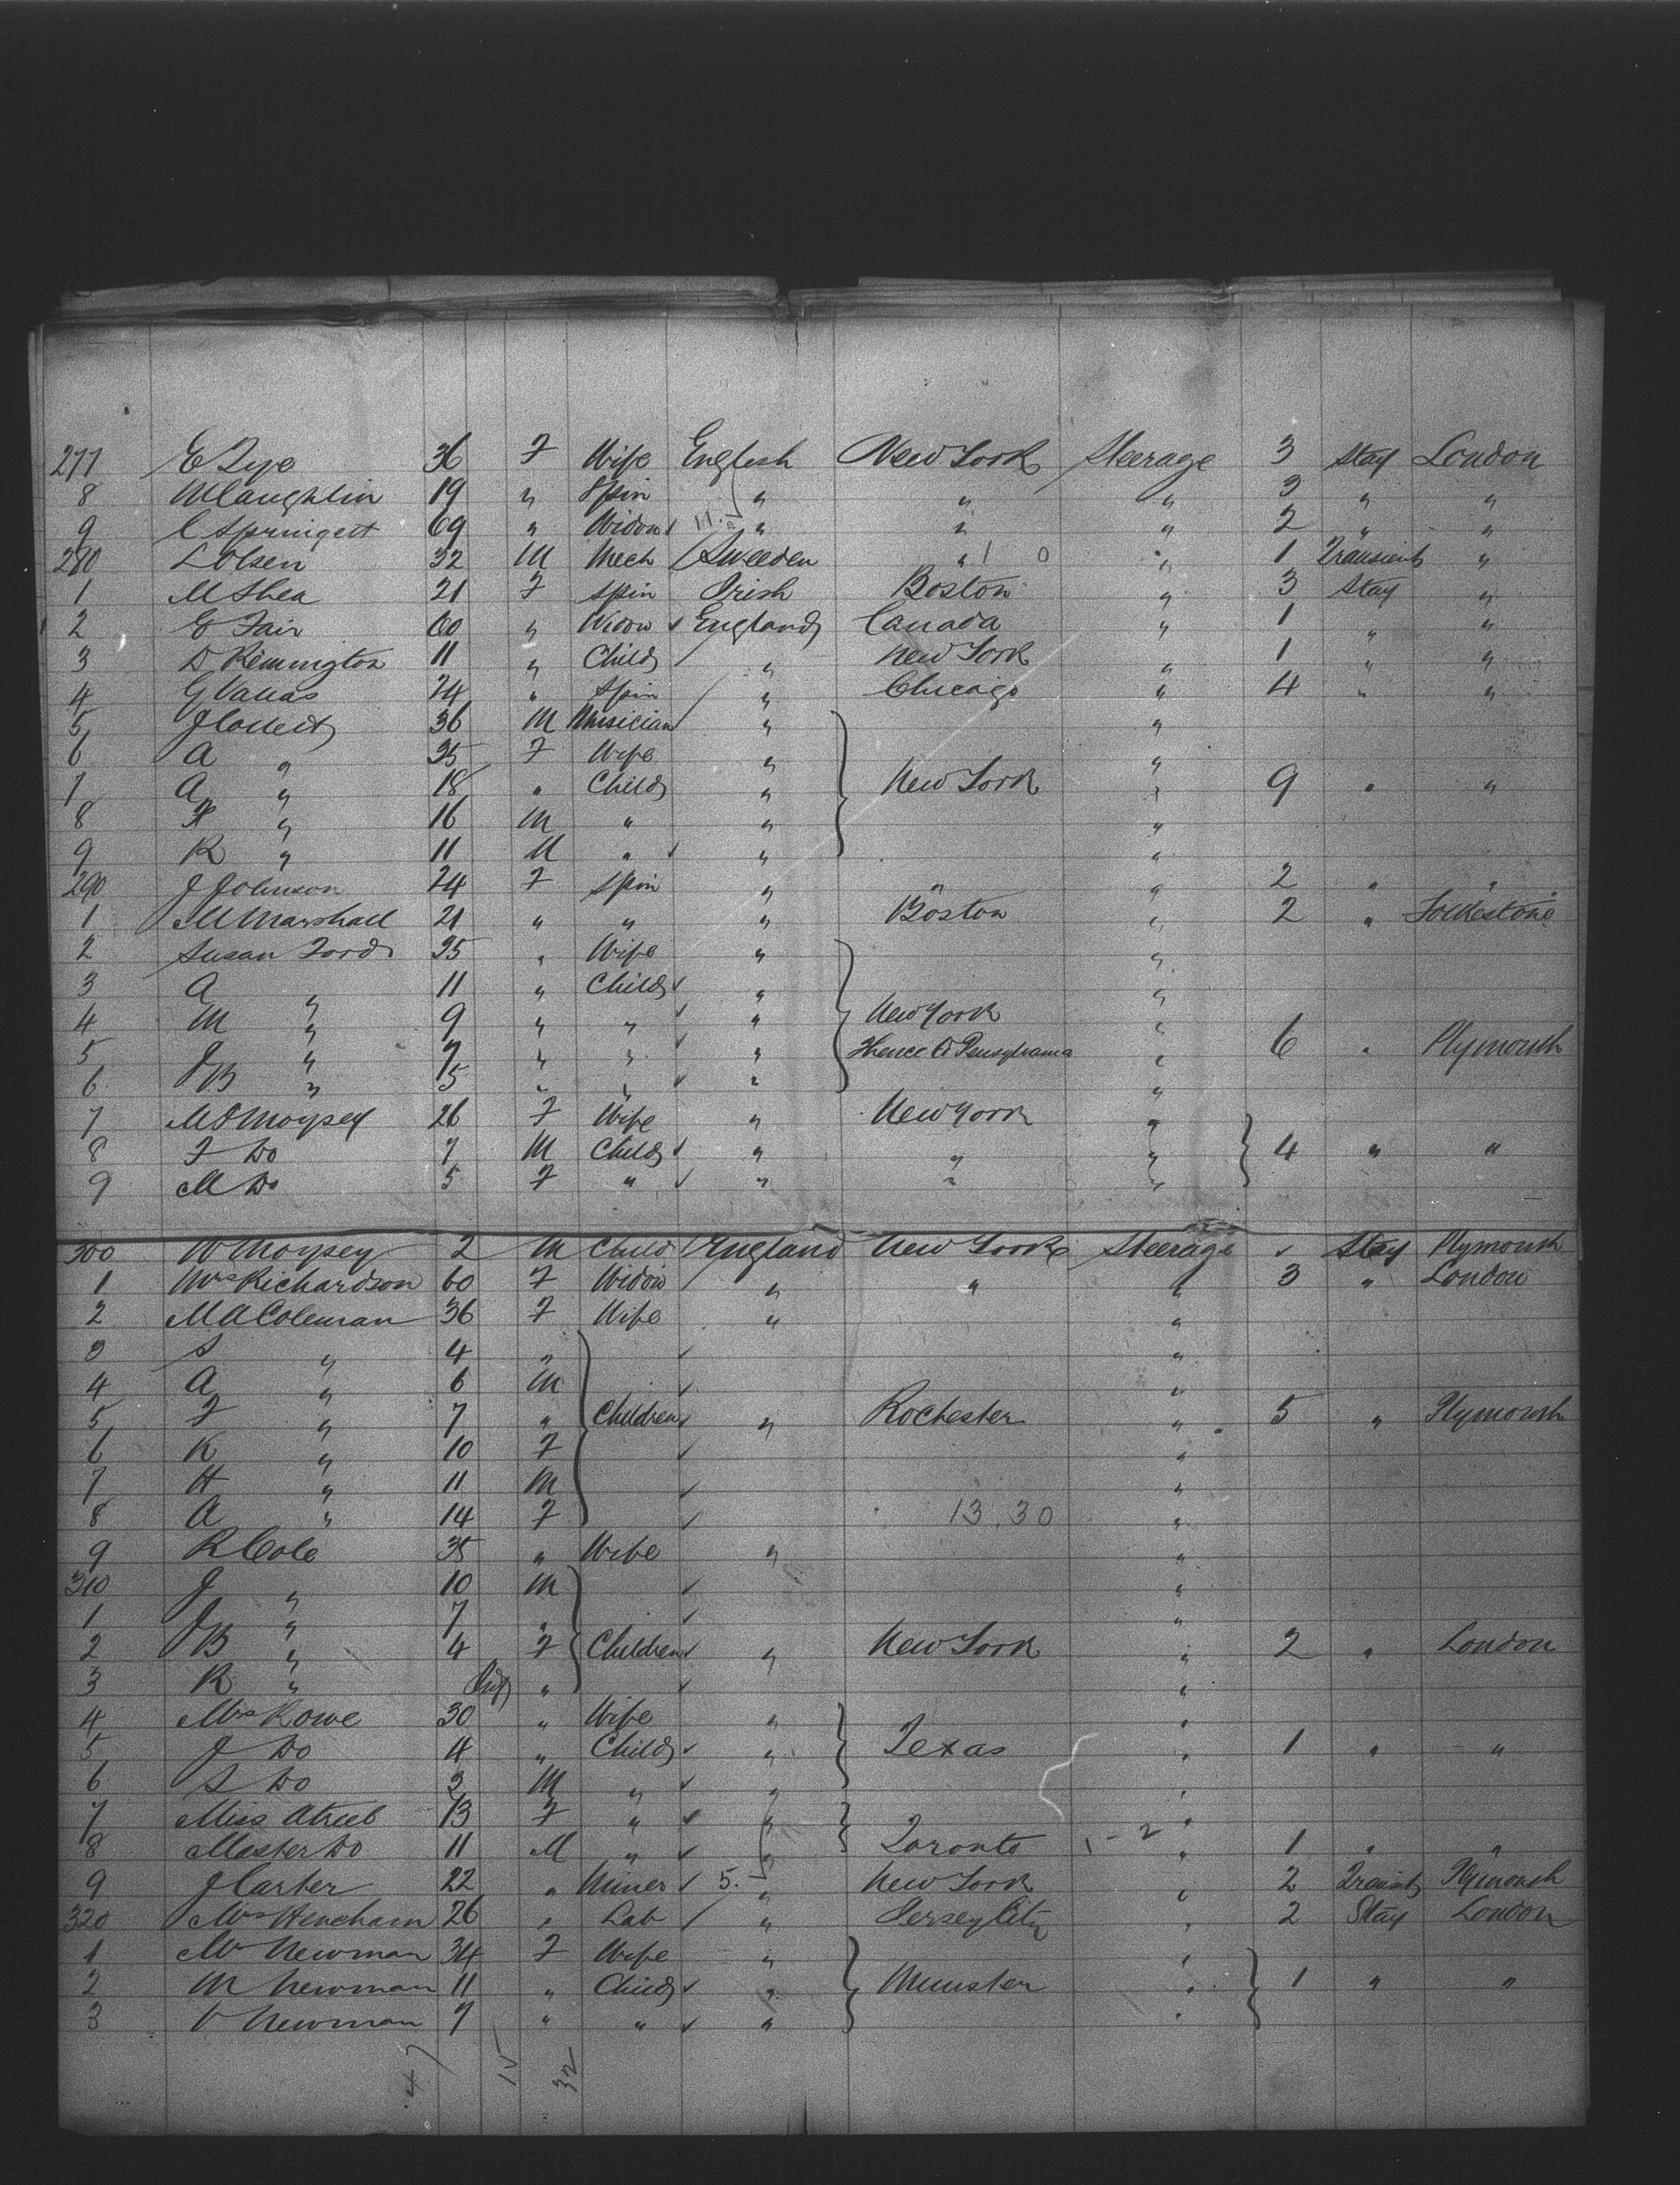 277 E Tye 36 F Wife English New York Steerage 3 Stay London
8 M Laughlin 19 " Spin " " " 3 " "
9 C Springett 69 " Widow " " " 2 " "
280 L Olsen 32 M Mech Sweeden " " 1 Transient "
1 M Shea 21 F Spin Irish Boston " 3 Stay "
2 E Fair 60 " Widow England Canada " 1 " "
3 D Remington 11 " Child " New York " 1 " "
4 G Vallas 24 " Spin " Chicago " 4 " "
5 J Collett 36 M Musician " "
6 A " 35 F Wife " "
7 A " 18 " Child " New York " 9 " "
8 F " 16 M " " "
9 R " 11 M " " "
290 J Johnson 24 F Spin " " " 2 " "
1 M Marshall 21 " " " Boston " 2 " Folkestone
2 Susan Ford 35 " Wife " "
3 A " 11 " Child " "
4 M " 9 " " " New York "
5 J " 7 " " " Thence to Pensylvania " 6 " Plymouth
6 B " 5 " " " "
7 M D Moysey 26 F Wife " New York "
8 F Do 7 M Child " " " 4 " "
9 M Do 5 F " " " "
300 W Moysey 2 M Child England New York Steerage Stay Plymouth
1 Mrs Richardson 60 F Widow " " " 3 " London
2 M A Coleman 36 F Wife " "
3 S " 4 " "
4 A " 6 M "
5 F " 7 " Children " Rochester " 5 " Plymouth
6 K " 10 F "
7 H " 11 M "
8 A " 14 F 13.30 "
9 R Cole 35 " Wife " "
310 J " 10 M "
1 J " 7 " "
2 B " 4 F Children " New York " 2 " London
3 R " Inf "
4 Mrs Rowe 30 " Wife " "
5 J Do 4 " Child " Texas " 1 " "
6 S Do 2 M " " "
7 Miss 13 F " "
8 Master Do 11 M " " Toronto 1-2 " 1 " "
9 J Carter 22 " Miner 5. " New York " 2 Transit Plymouth
320 Mrs Hencham 26 " Lab " Jersey City " 2 Stay London
1 Mrs Newman 34 F Wife " "
2 M Newman 11 " Child " Munster " 1 " "
3 V Newman 7 " " " "
47 15 32